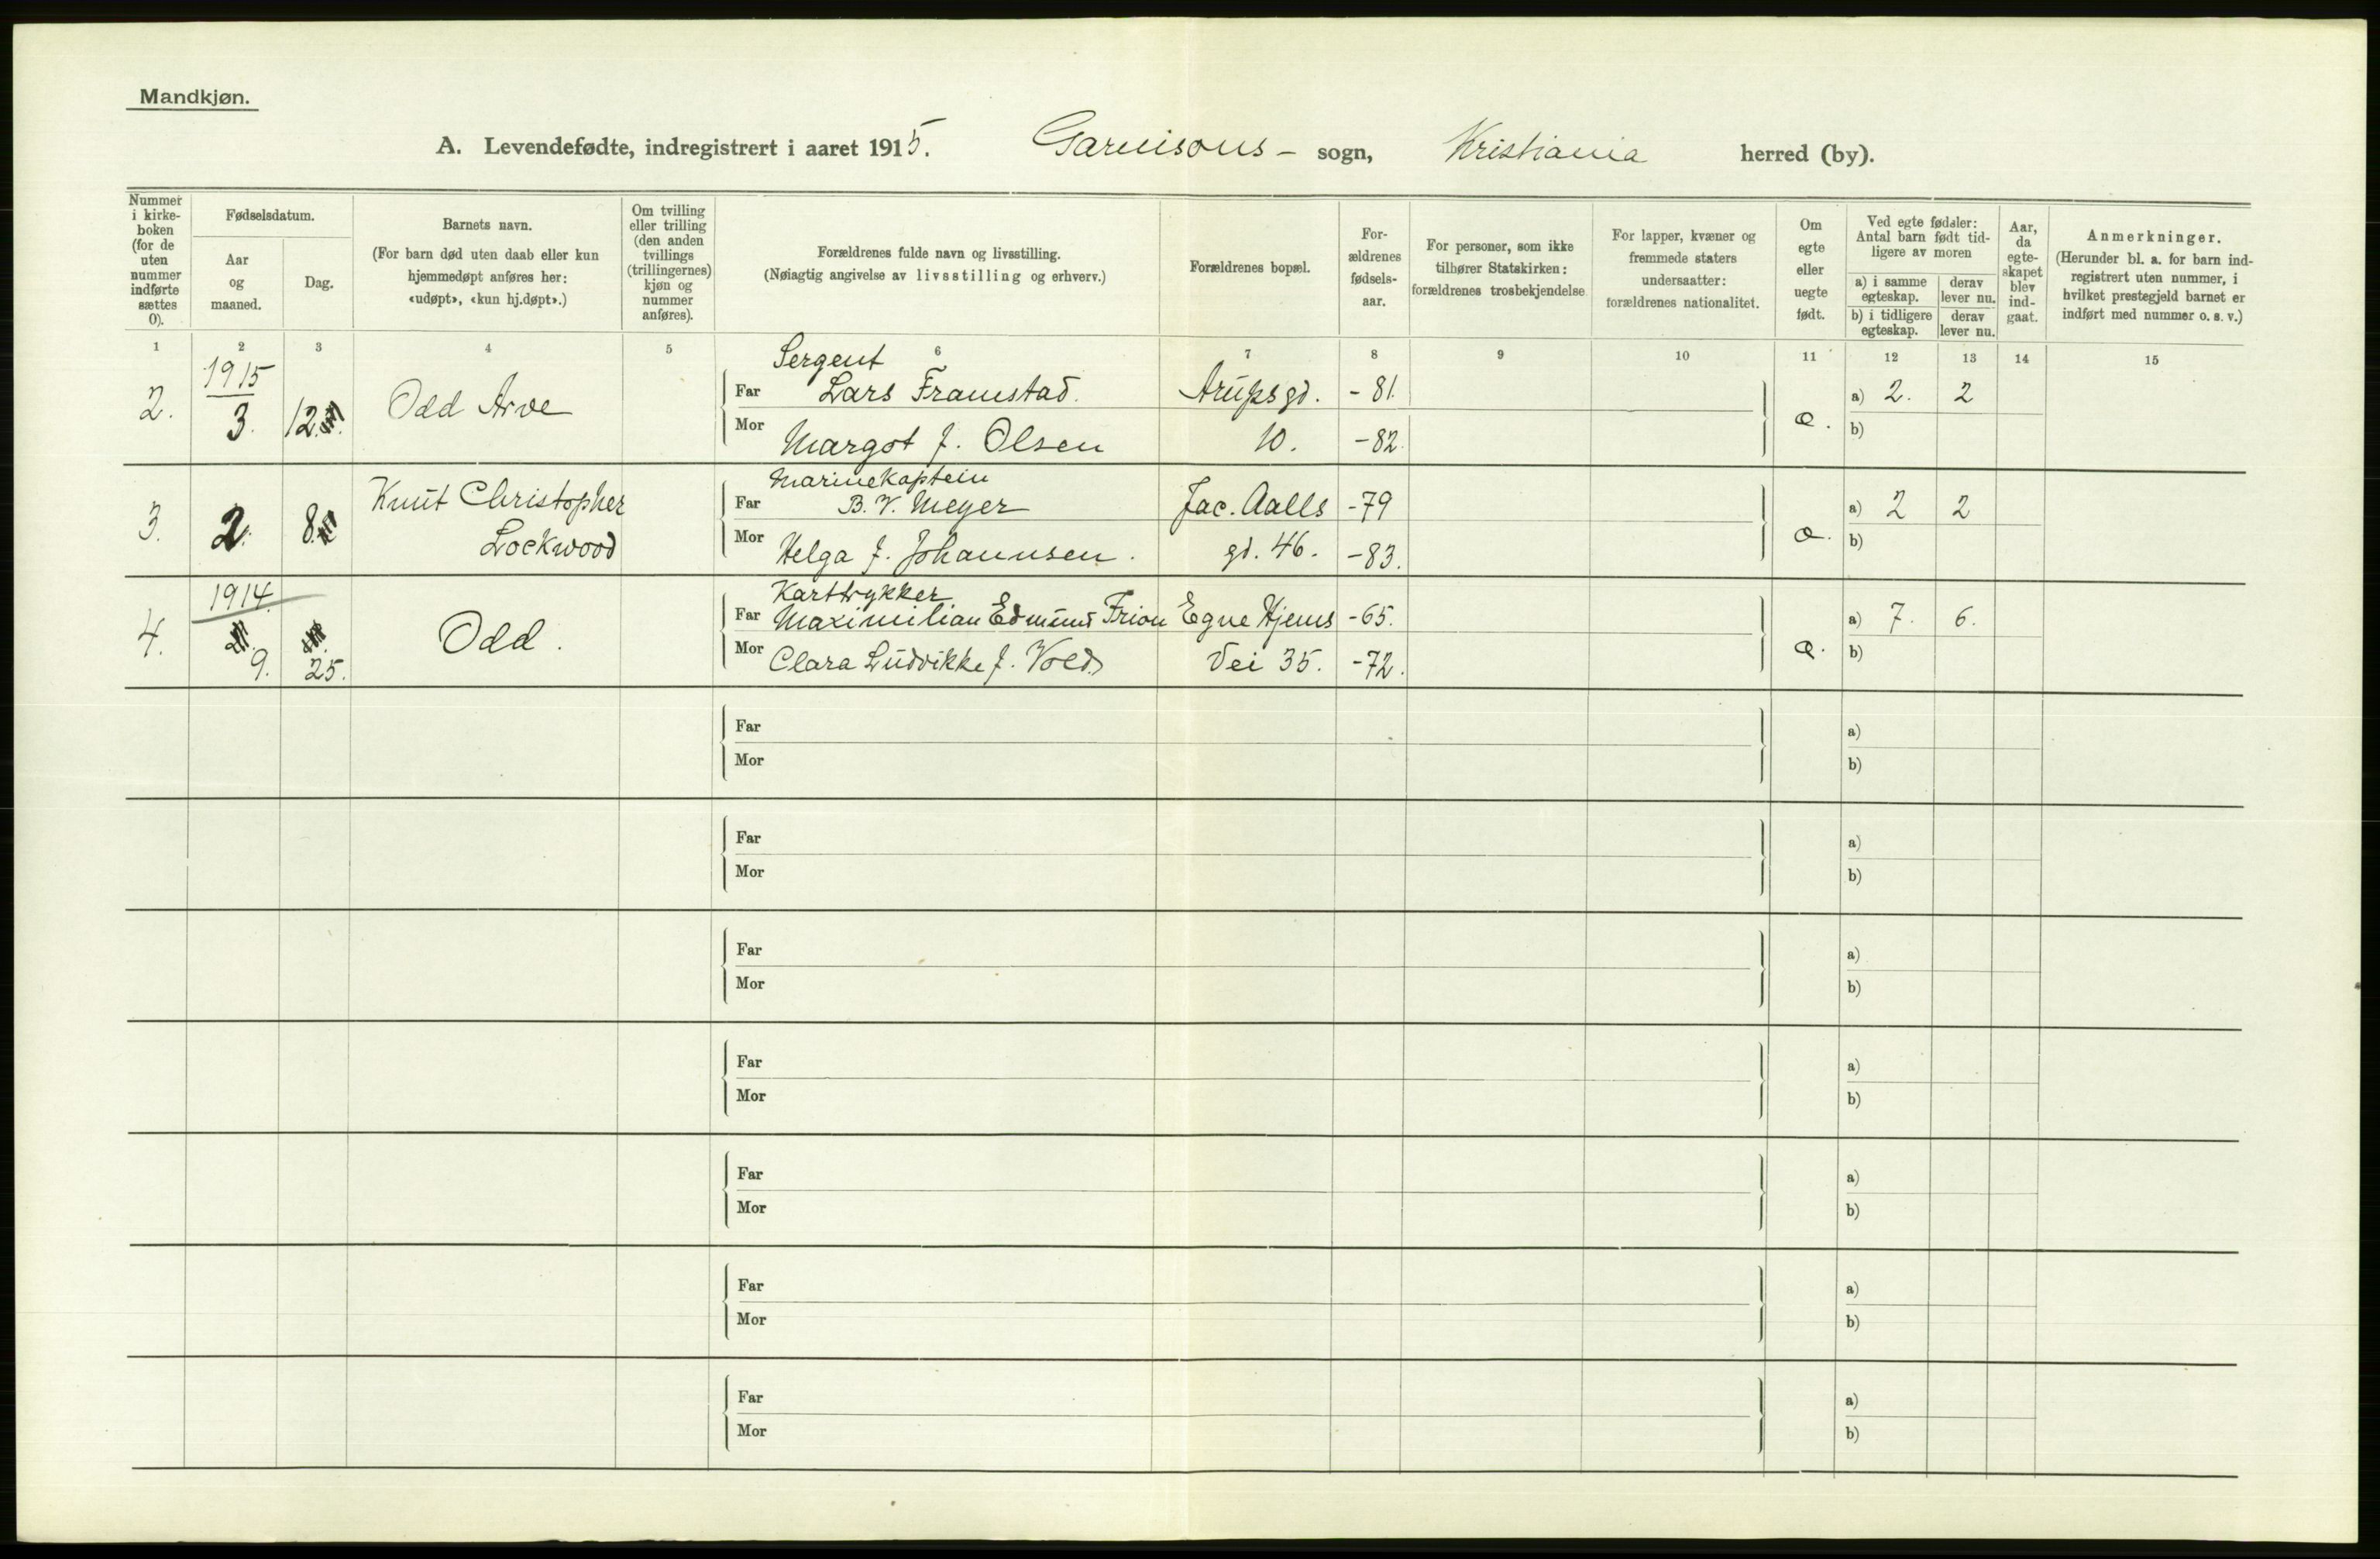 Mandkjøn.
A. Levendefødte, indregistrert i aaret 1915. Garnisons- sogn, Kristiania herred (by).
Nummer i kirke-boken (for de uten nummer indførte sættes 0).
Fødselsdatum.
Aar og maaned.
Dag.
Barnets navn.
(For barn død uten daab eller kun hjemmedøpt anføres her: «udøpt», «kun hj.døpt».)
Om tvilling eller trilling (den anden tvillings (trillingernes) kjøn og nummer anføres).
Forældrenes fulde navn og livsstilling.
(Nøiagtig angivelse av livsstilling og erhverv.)
Forældrenes bopæl.
For-ældrenes fødsels-aar.
For personer, som ikke tilhører Statskirken: forældrenes trosbekjendelse
For lapper, kvæner og fremmede staters undersaatter: forældrenes nationalitet.
Om egte eller uegte født.
Ved egte fødsler: Antal barn født tid-ligere av moren
a) i samme egteskap. derav lever nu.
b) i tidligere egteskap. derav lever nu.
Aar, da egte-skapet blev ind-gaat.
Anmerkninger.
(Herunder bl. a. for barn ind-registrert uten nummer, i hvilket prestegjeld barnet er indført med nummer o. s. v.)
1 2 3 4 5 6 7 8 9 10 11 12 13 14 15
1915 Sergent
2. 3. 12. Odd Arve Far Lars Framstad. Arupsgd. -81. a) 2. 2
Mor Margot f. Olsen 10. -82. e. b)
Marinekaptein
3. 2. 8. Knut Christopher Far B. V. Meyer Jac. Aalls -79 a) 2 2
Lockwood Mor Helga f. Johannsen. gd. 46. -83. e. b)
1914. Karttrykker
4. Odd. Far Maximilian Edmund Frion Egne Hjems -65. a) 7. 6.
9. 25. Mor Clara Ludvikke f. Vold Vei 35. -72. e. b)
Far a)
Mor b)
Far a)
Mor b)
Far a)
Mor b)
Far a)
Mor b)
Far a)
Mor b)
Far a)
Mor b)
Far a)
Mor b)